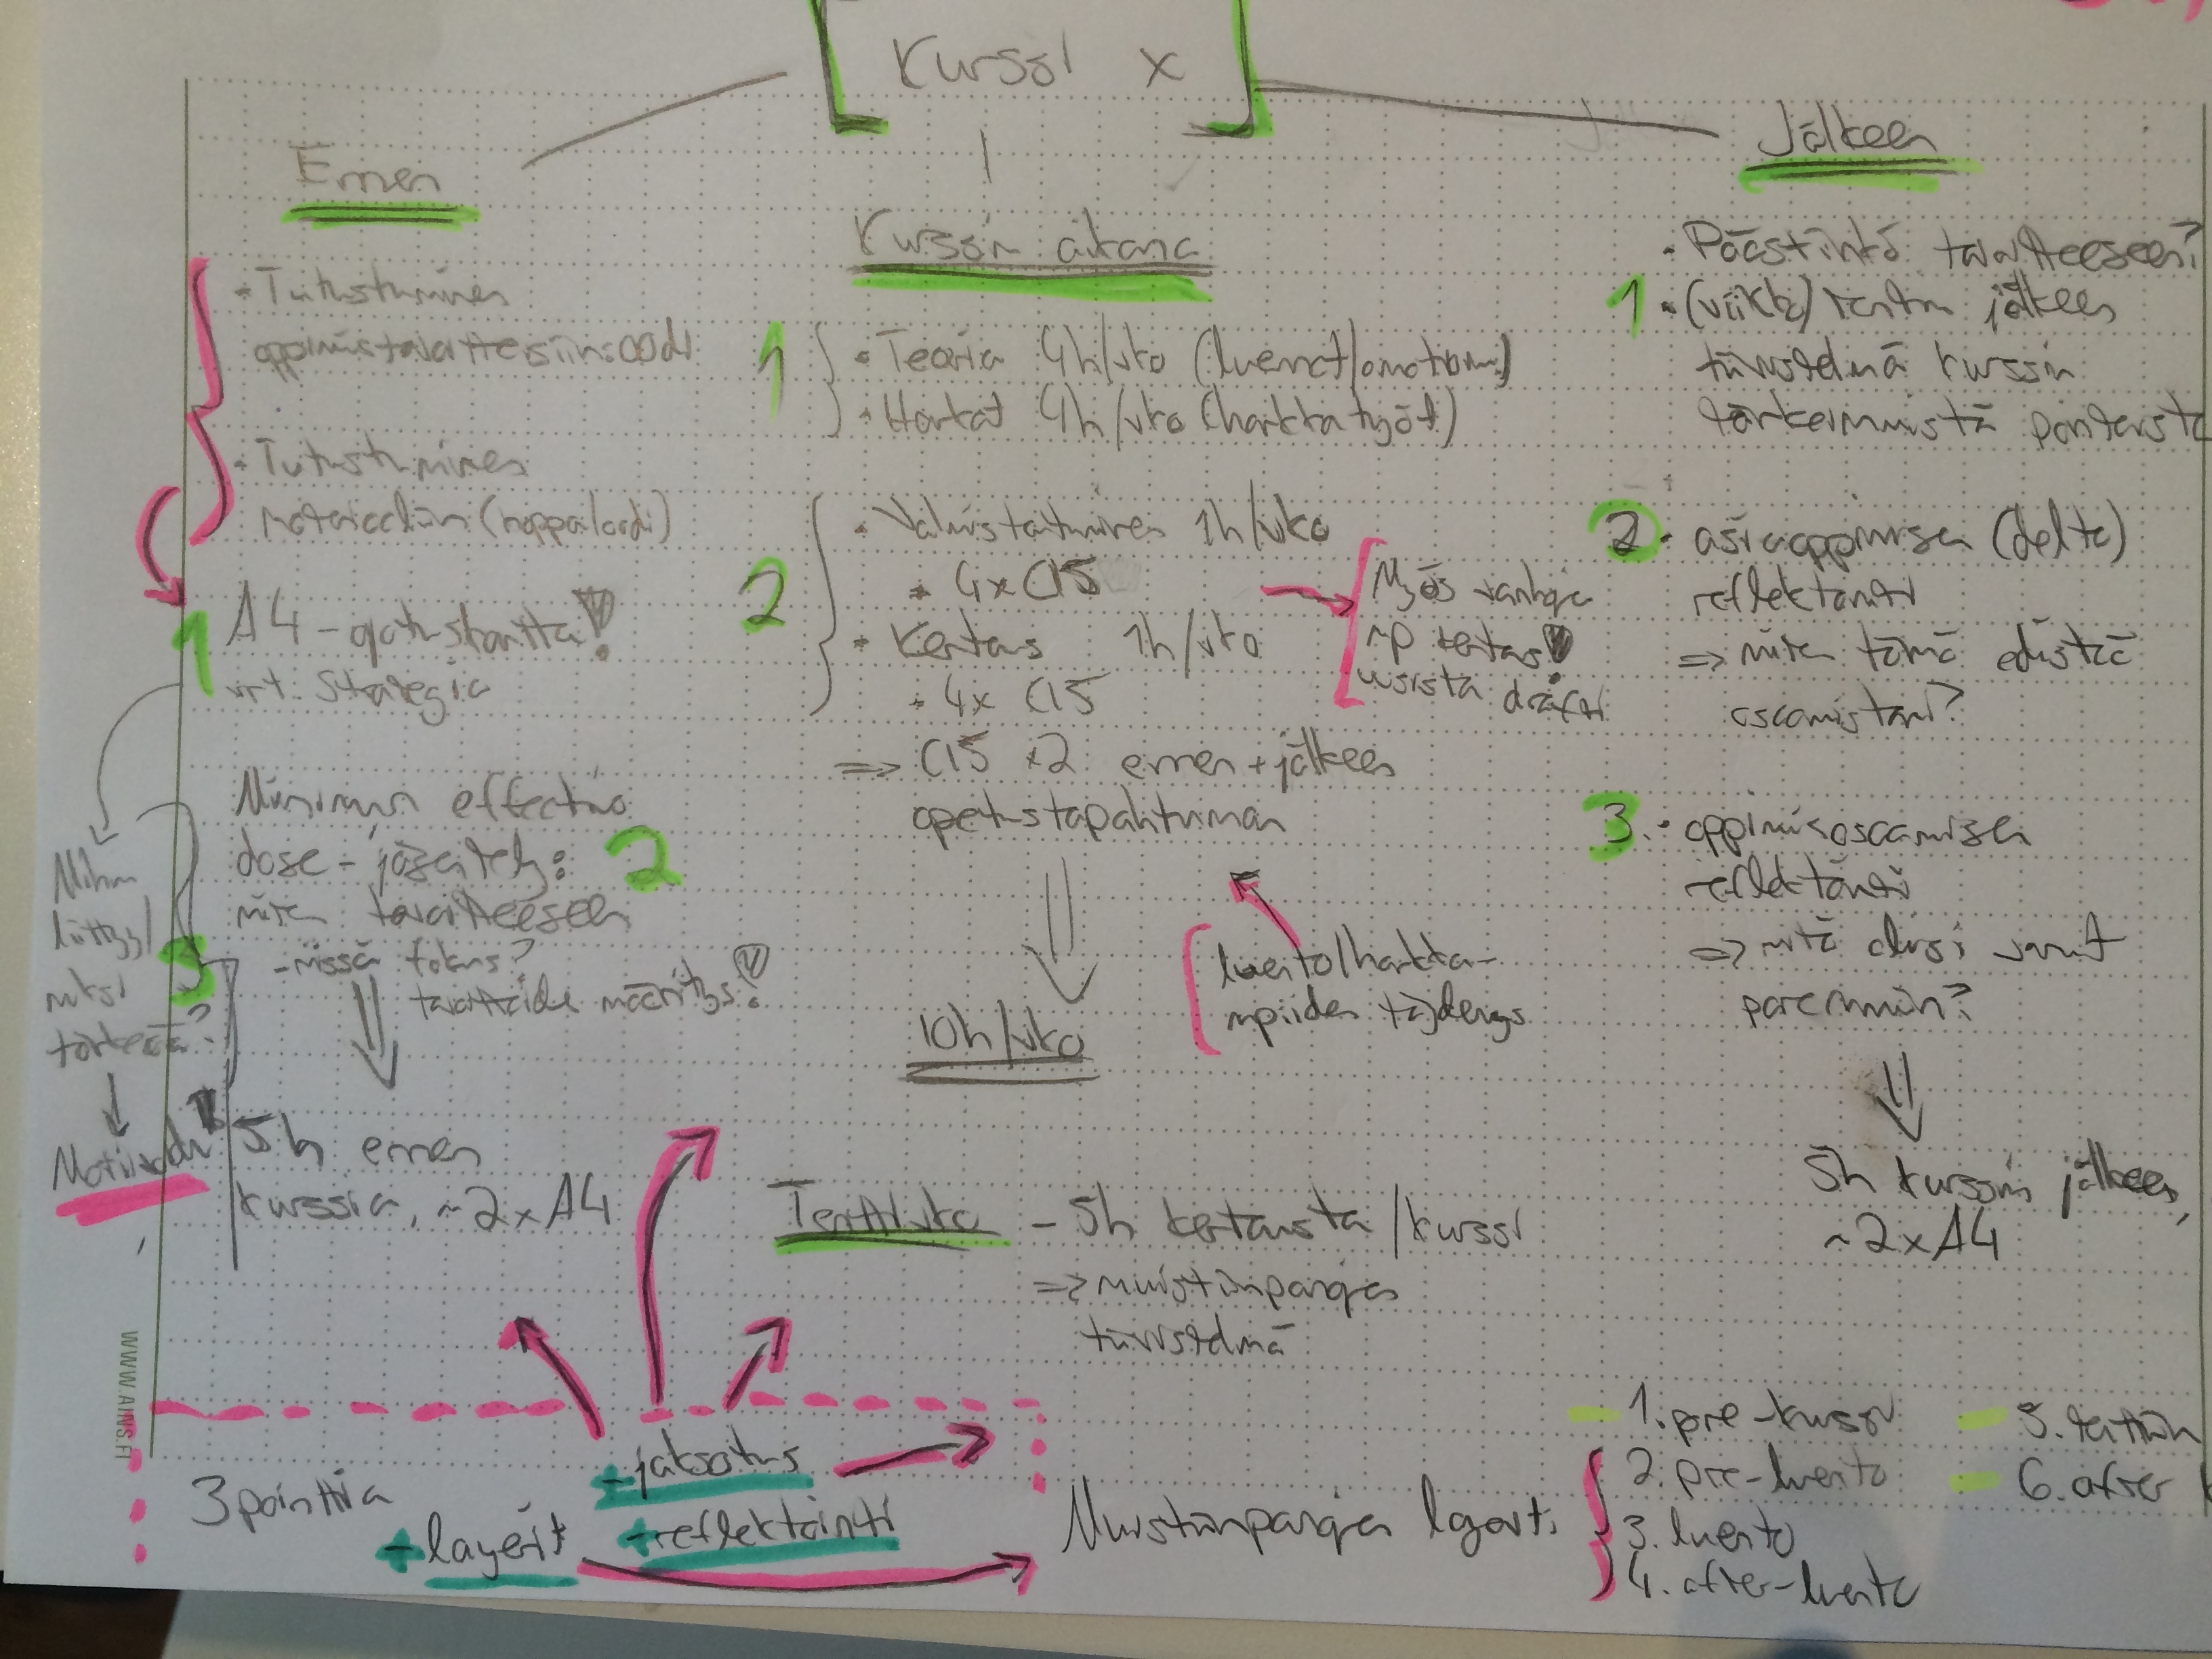 Kurssi x
Ennen
Tutustuminen
oppimistavoitteisiin
Tutustuminen
A4
vrt. Strategia
Minimum effective
dose - jäsentely: 2
miten tavoitteeseen
- missä fokus?
tavoitteide määritys!
Mihin
liittyy/
miksi
tärkeää?
Motivaatio!
5h ennen
kurssia, ~2xA4
Kurssin aikana
1 • Teoria 4h/vko (luennot/omatoimi)
• Harkat 4h/vko (harkkatyöt)
2 • Valmistautuminen 1h/vko
• 4x C15
• Kertaus 1h/vko
• 4x C15
Myös vanhoja
mp kertaus!
=> C15 x2 ennen + jälkeen
opetustapahtuman
luento/harkka-
mpiiden täydennys
10h/vko
Tenttivko - 5h kertausta/kurssi
=> muistiinpanojen
tiivistelmä
Jälkeen
• Päästiinkö tavoitteeseen?
1 • (viikko) tentin jälkeen
tiivistelmä kurssin
tärkeimmistä pointeista
2 • asiaoppimisen (delta)
reflektointi
=> miten tämä edistää
osaamistani?
3. • oppimisosaamisen
reflektointi
=> mitä olisi voinut
paremmin?
5h kurssin jälkeen,
~2xA4
WWW.AINS.FI
3 pointtia
- jaksotus
- layerit
- reflektointi
Muistiinpanojen layerit:
1. pre-kurssi
2. pre-luento
3. luento
4. after-luento
5. tenttiin
6. after